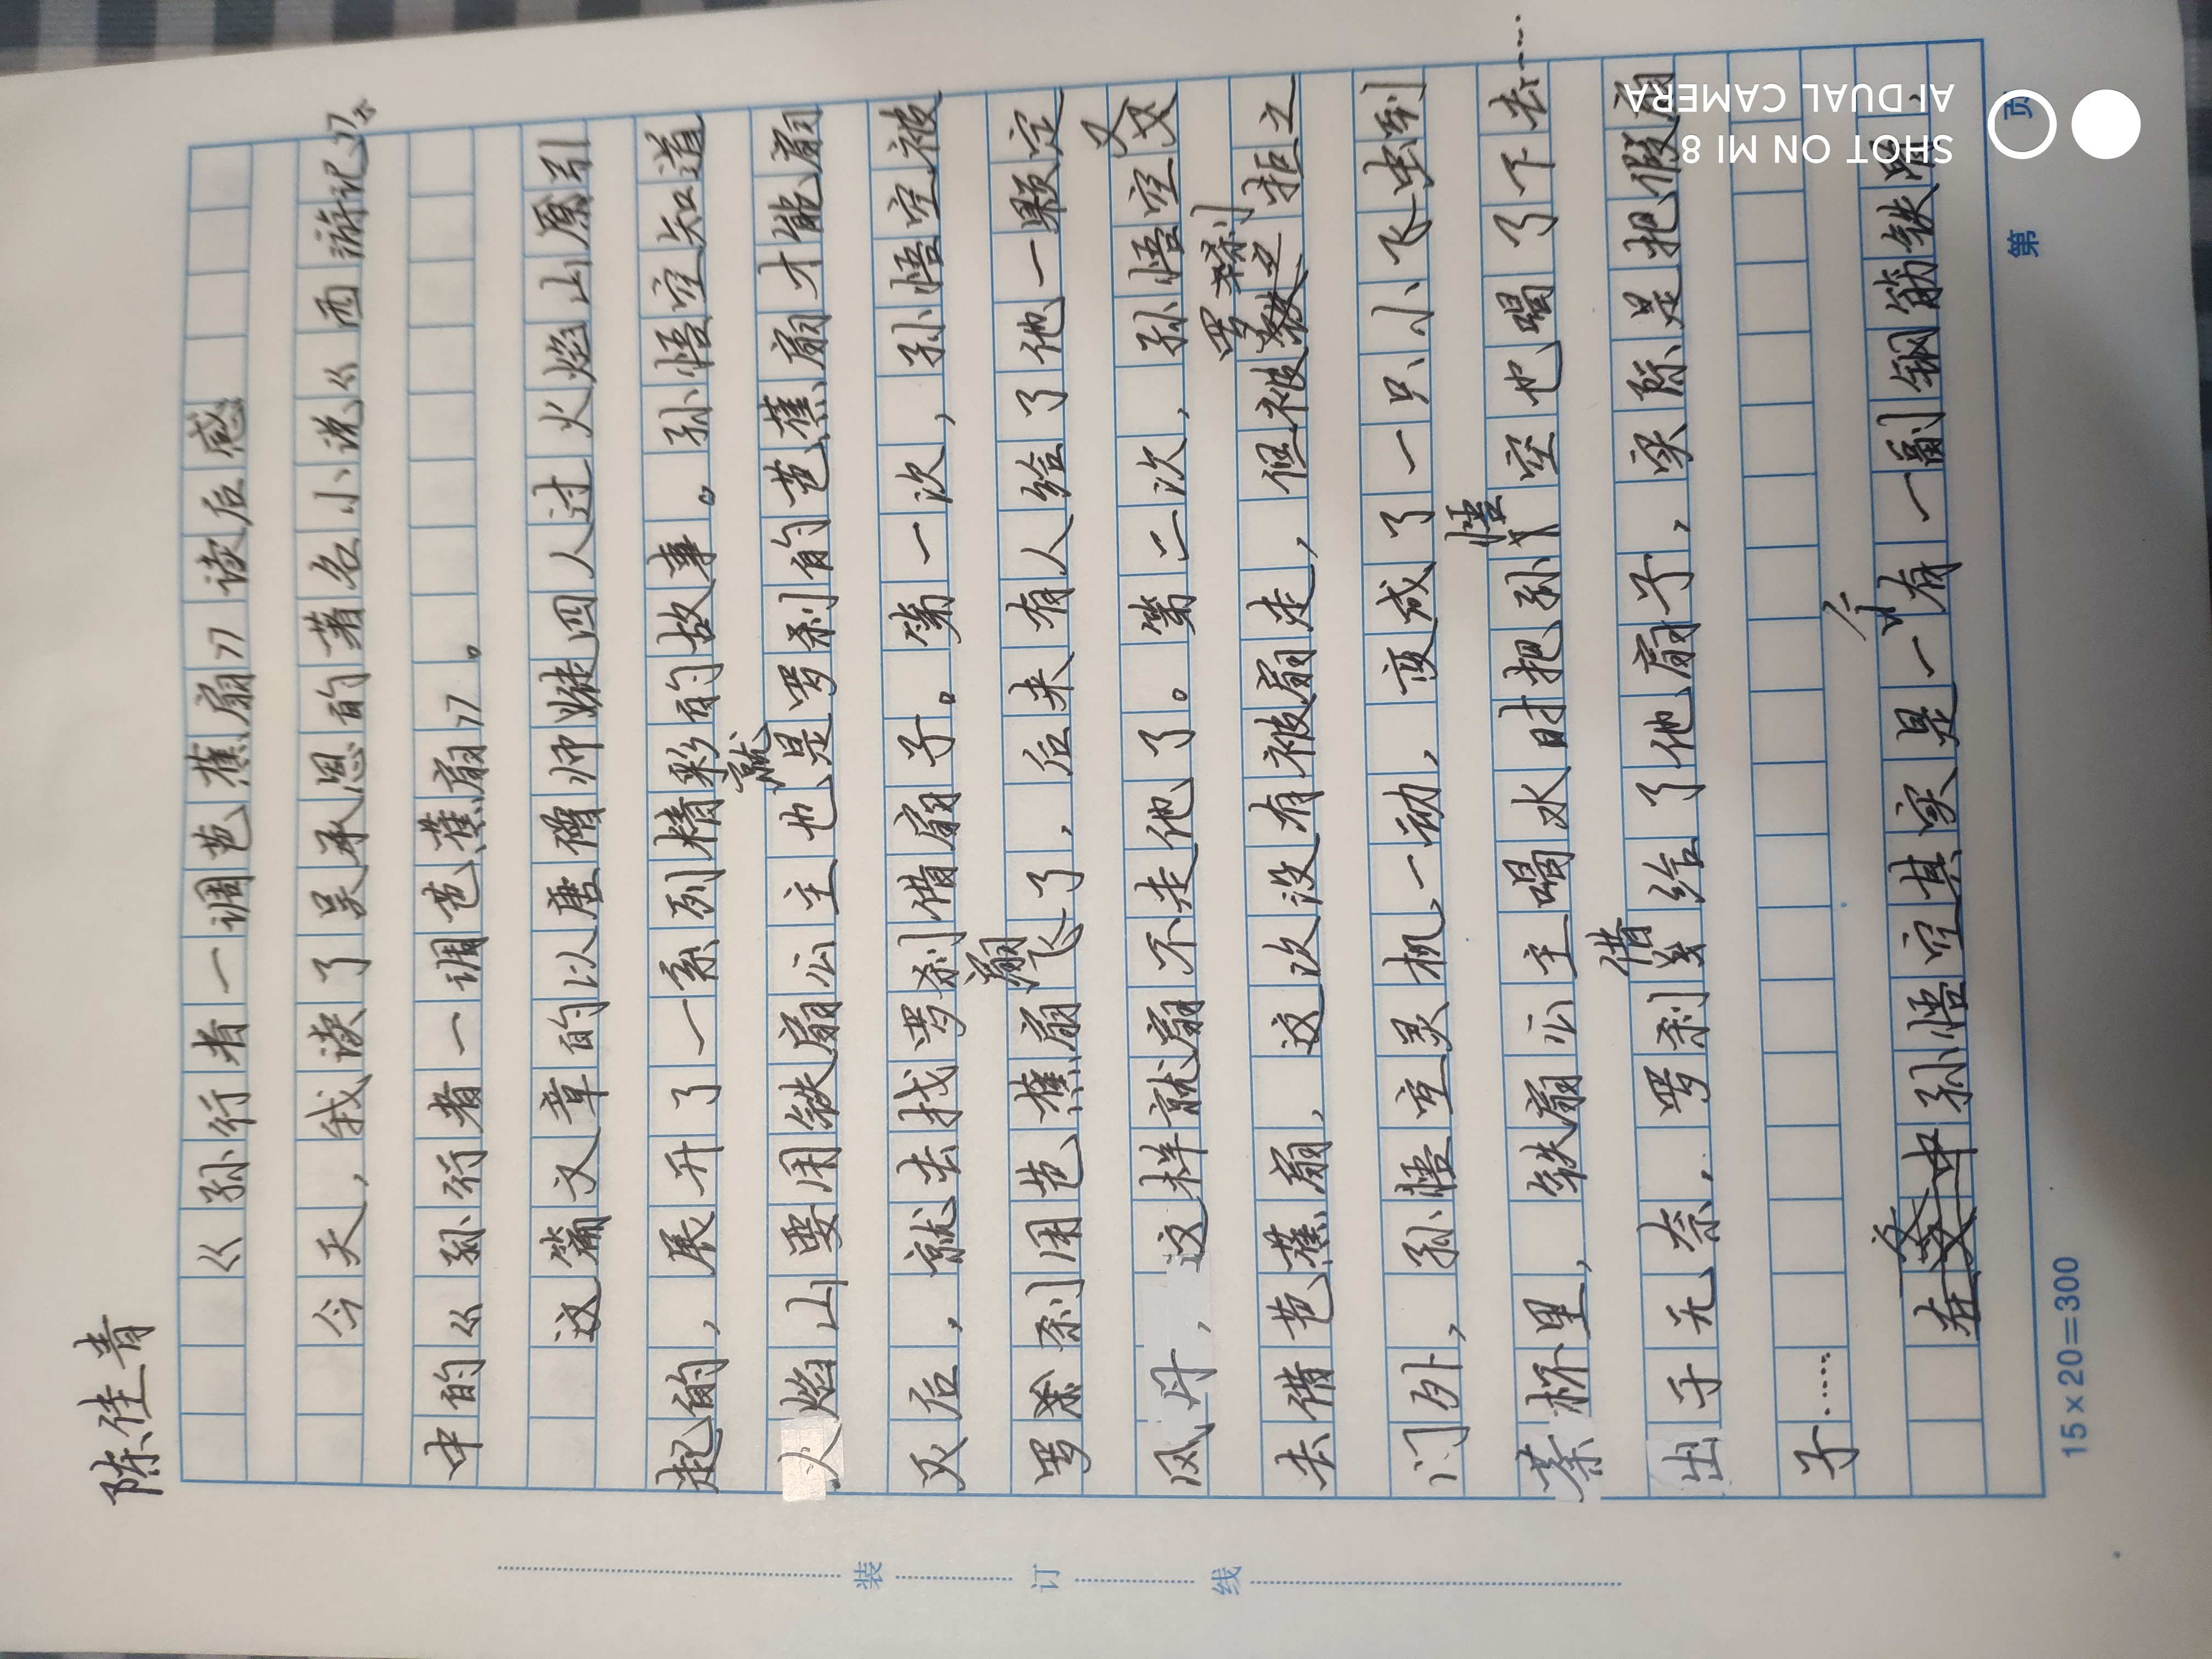 陈佳青
《孙行者一调芭蕉扇》读后感
今天，我读了吴承恩的著名小说《西游记》
中的《孙行者一调芭蕉扇》。
这篇文章的以唐僧师徒四人过火焰山原引
起的，展开了一系列精彩的故事。孙悟空知道
火焰山要用铁扇公主也就是罗刹的芭蕉扇才能扇
灭后，就去找罗刹借扇子。第一次，孙悟空被
罗刹用芭蕉扇扇飞了，后来有人给了他一颗定
风丹，这样就扇不走他了。第二次，孙悟空又
去借芭蕉扇，这次没有被扇走，但被罗刹拒之
门外，孙悟空灵机一动，变成了一只小飞虫到
茶杯里，铁扇公主喝水时把孙悟空也喝了下去……
出于无奈，罗刹借给了他扇子，实际是把假扇
子……
在文中孙悟空其实是一个有一副钢筋铁骨，
15×20=300
第 页
装 订 线
SHOT ON MI 8
AI DUAL CAMERA